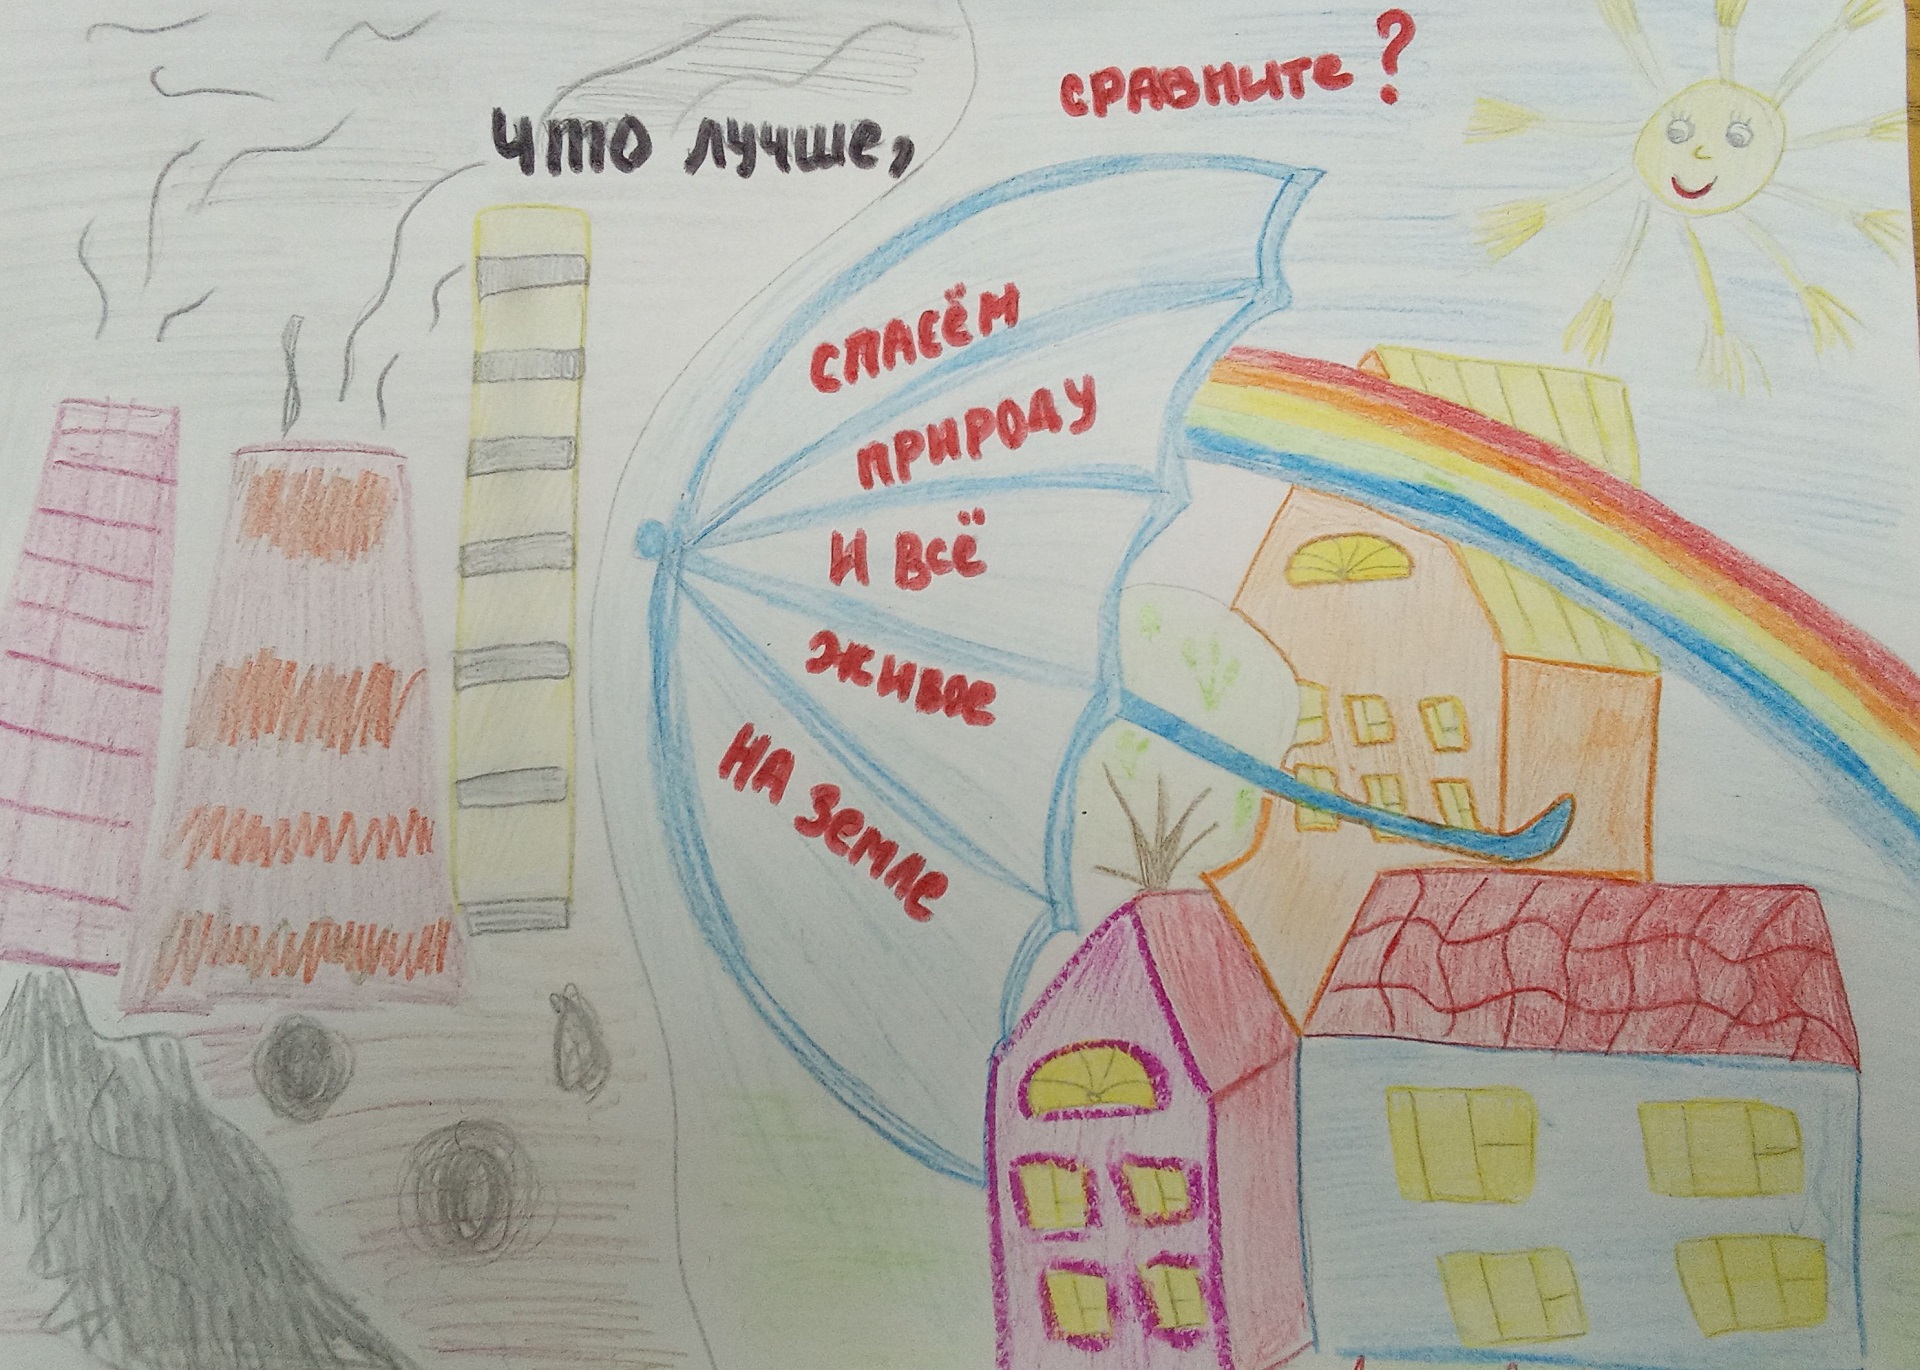 что лучше,
сравните?
спасём
природу
и всё
живое
на земле